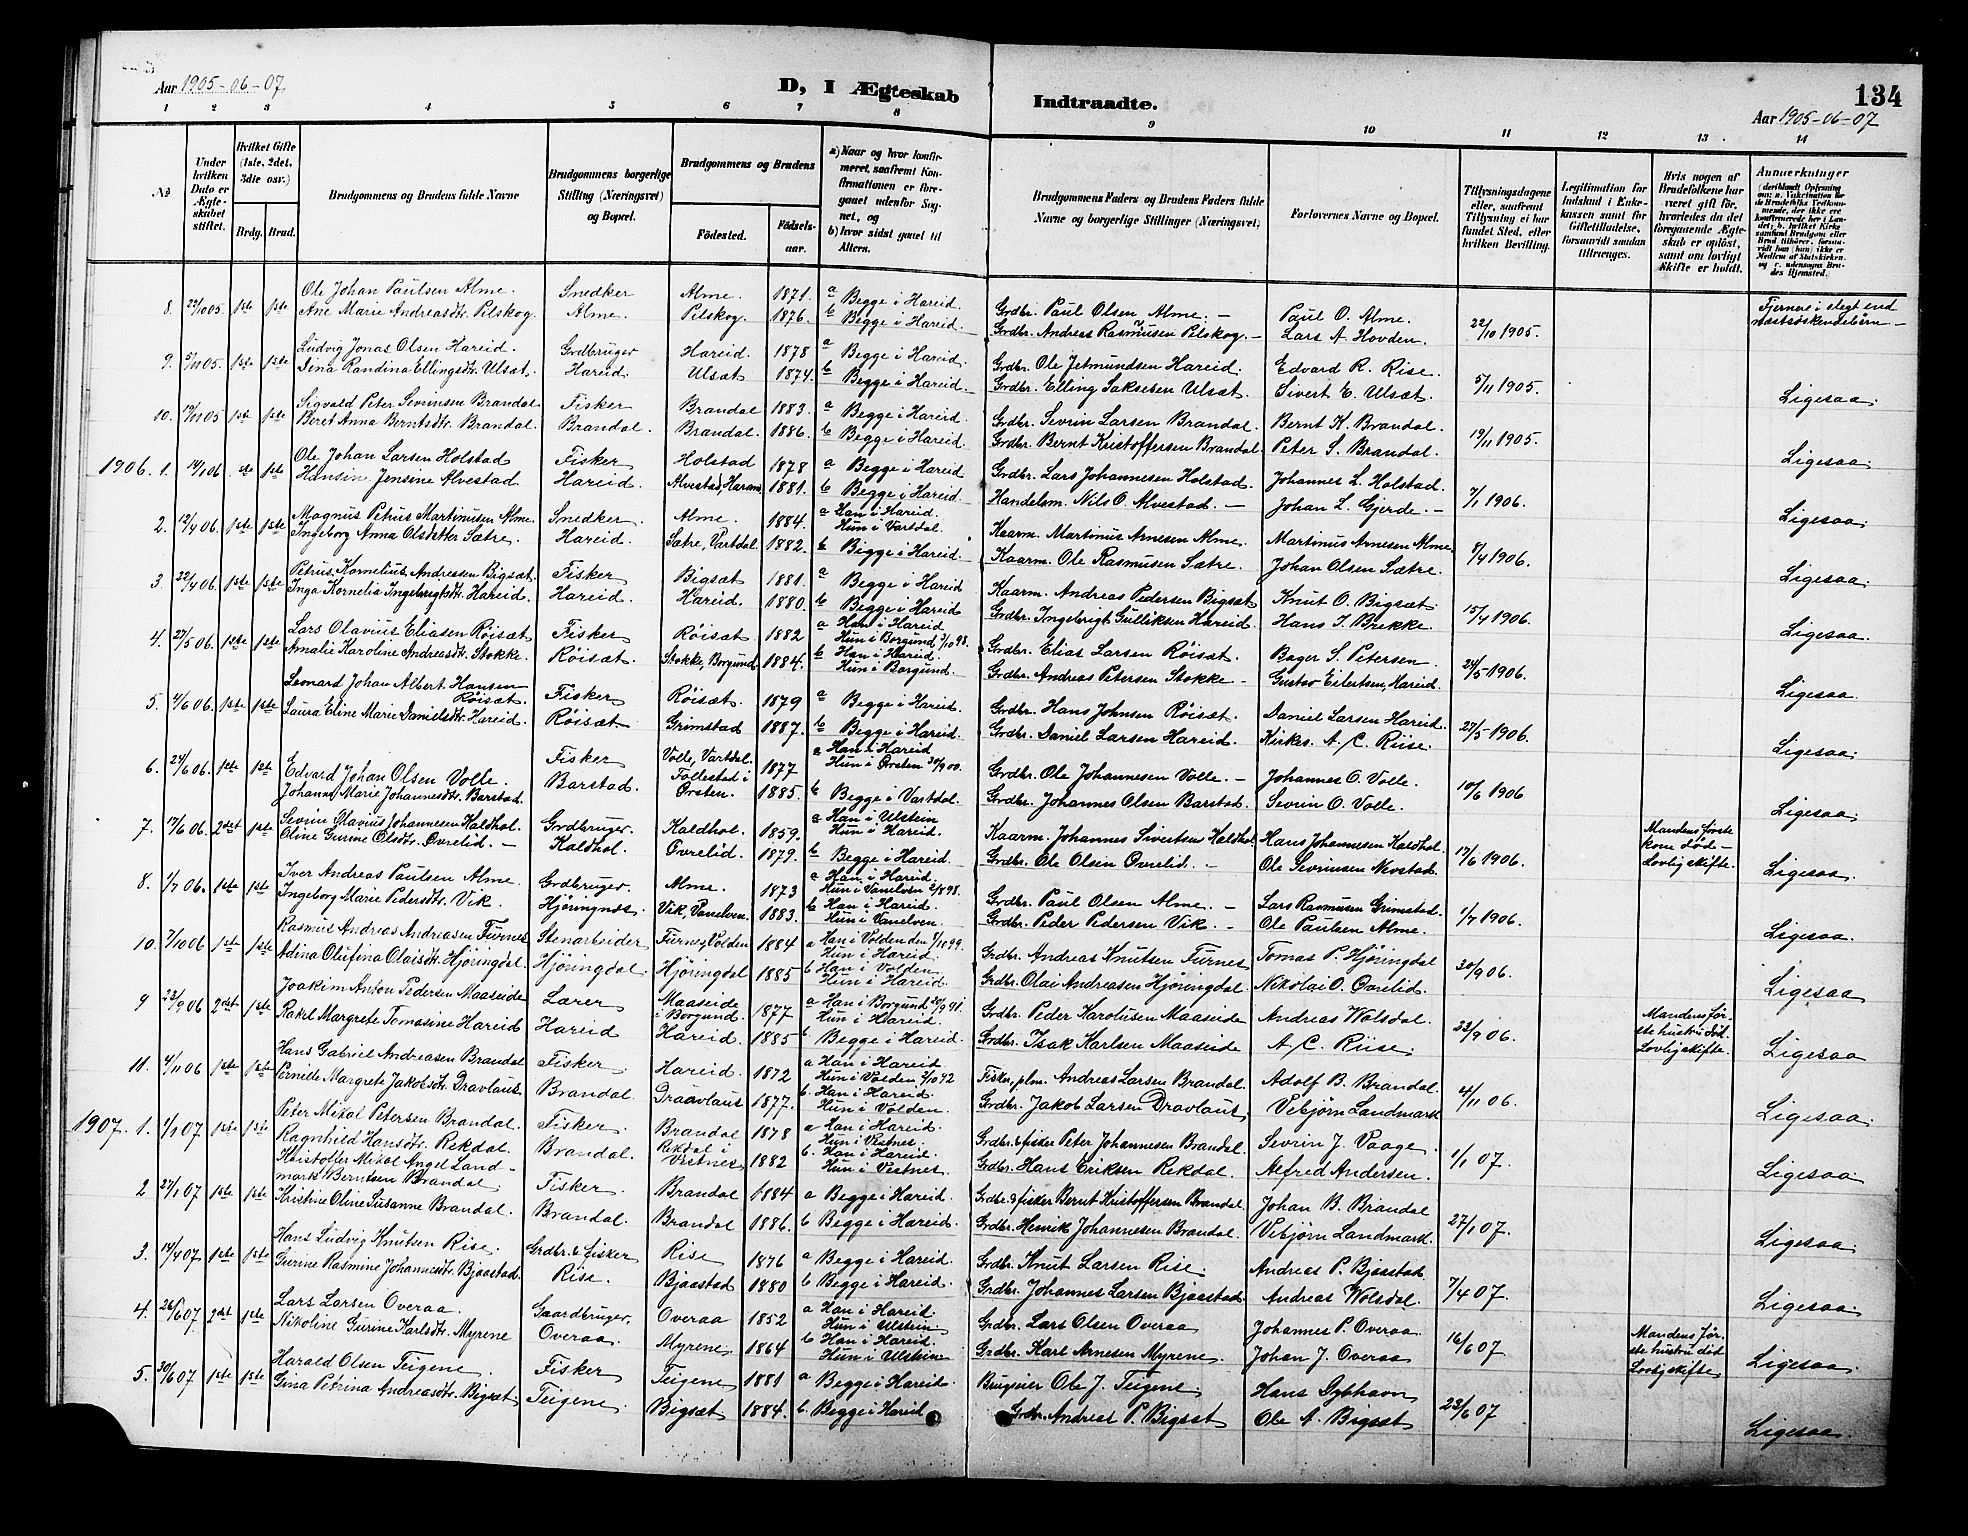 Aar 1905-06-07.
D, I Ægteskab Indtraadte.
134
Aar 1905-06-07
1 2 3 4 5 6 7 8 9 10 11 12 13 14
No
Under hvilken Dato er Ægteskabet stiftet.
Hvilket Gifte (1ste, 2det, 3die osv.)
Brdg. Brud.
Brudgommens og Brudens fulde Navne
Brudgommens borgerlige Stilling (Næringsvei) og Bopæl.
Brudgommens og Brudens
Fødested. Fødselsaar.
a) Naar og hvor konfirmeret, saafremt Konfirmationen er foregaaet udenfor Sognet, og
b) hvor sidst gaaet til Alters.
Brudgommens Faders og Brudens Faders fulde Navne og borgerlige Stillinger (Næringsvei)
Forlovernes Navne og Bopæl.
Tillysningsdagene eller, saafremt Tillysning ei har fundet Sted, efter hvilken Bevilling.
Legitimation for Indskud i Enkekassen samt for Giftetilladelse, forsaavidt saadan tiltrænges.
Hvis nogen af Brudefolkene har været gift før, hvorledes da det foregaaende Ægteskab er opløst, samt om lovligt Skifte er holdt.
Anmærkninger
8. 22/10 05. 1ste 1ste Ole Johan Paulsen Alme. Snedker Alme. 1871. a Begge i Hareid. Grdbr. Paul Olsen Alme. Paul O. Alme. 22/10 1905. Fjernere i slegt end næstsøskendebørn
Ane Marie Andreasdtr. Pilskog. Alme. Pilskog. 1876. b Begge i Hareid. Grdbr. Andreas Rasmusen Pilskog. Lars A. Hovden.
9. 5/11 05. 1ste 1ste Ludvig Jonas Olsen Hareid. Grdbruger Hareid. 1878 a Begge i Hareid. Grdbr. Ole Jetmundsen Hareid. Edvard R. Rise. 5/11 1905. Ligesaa.
Dina Randina Ellingsdtr. Ulsæt. Hareid Ulsæt 1874. b Begge i Hareid. Grdbr. Elling Saksesen Ulsæt. Sivert E. Ulsæt.
10. 19/11 05 1ste 1ste Sigvald Peter Sevrinsen Brandal. Fisker Brandal 1883. a Begge i Hareid. Grdbr. Sevrin Larsen Brandal. Bernt K. Brandal. 19/11 1905. Ligesaa.
Beret Anna Berntsdtr. Brandal. Brandal. Brandal. 1886. b Begge i Hareid. Grdbr. Bernt Kristoffersen Brandal. Peter S. Brandal.
1906. 1. 14/1 06 1ste 1ste Ole Johan Larsen Holstad Fisker Holstad 1878 a Begge i Hareid Grdbr. Lars Johannesen Holstad. Johannes L. Holstad. 7/1 1906. Ligesaa.
Hansin Jensine Alvestad Hareid. Alvestad, Haram. 1881. b Begge i Hareid. Handelsm. Nils O. Alvestad. Johan L. Gjerde.
2. 12/4 06. 1ste 1ste Magnus Petrus Martinusen Alme. Snedker. Alme. 1884. a Han i Hareid. Hun i Vartdal. Kaarm. Martinus Arnesen Alme. Martinus Arnesen Alme. 8/4 1906. Ligesaa.
Ingeborg Anna Olsdatter Sætre. Hareid. Sætre, Vartdal. 1882. b Begge i Hareid. Kaarm. Ole Rasmusen Sætre. Johan Olsen Sætre.
3. 22/4 06. 1ste 1ste Petrus Kornelius Andreasen Bigsæt. Fisker Bigsæt 1881. a Begge i Hareid. Kaarm. Andreas Pedersen Bigsæt Knut O. Bigsæt 15/4 1906. Ligesaa.
Inga Kornelia Ingebrigtsdtr. Hareid. Hareid. Hareid. 1880. b Begge i Hareid Grdbr. Ingebrigt Gulliksen Hareid. Hans I. Brekke.
4. 27/5 06. 1ste 1ste Lars Olavius Eliasen Røisæt Fisker Røisæt 1882 a Han i Hareid Hun i Borgund 2/10 98. Grdbr. Elias Larsen Røisæt. Bager S. Petersen 24/5 1906. Ligesaa
Amalie Karoline Andreasdtr. Stokke. Røisæt. Stokke, Borgund 1884. b Han i Hareid Hun i Borgund. Grdbr. Andreas Petersen Stokke Gustav Eilertsen, Hareid
5. 4/6 06. 1ste 1ste Leonard Johan Albert Hansen Røisæt Fisker Røisæt 1879 a Begge i Hareid. Grdbr. Hans Johnsen Røisæt. Daniel Larsen Hareid. 27/5 1906 Ligesaa.
Laura Eline Marie Danielsdtr. Hareid. Røisæt Grimstad 1887. b Begge i Hareid. Grdbr. Daniel Larsen Hareid. Kirkes. A. C. Riise.
6. 24/6 06. 1ste 1ste Edvard Johan Olsen Volle. Fisker Volle, Vartdal. 1877 a Han i Hareid Hun i Ørsten 30/9 00. Grdbr. Ole Johannesen Volle. Johannes O. Volle. 10/6 1906 Ligesaa.
Johanne Marie Johannesdtr. Barstad. Barstad. Follestad i Ørsten. 1885. b Begge i Vartdal. Grdbr. Johannes Olsen Barstad. Sevrin O. Volle.
7. 17/6 06. 2det 1ste Sevrin Olavius Johannesen Kaldhol. Grdbruger. Kaldhol. 1859. a Han i Ulstein Hun i Hareid. Kaarm. Johannes Sivertsen Kaldhol. Hans Johannesen Kaldhol. 17/6 1906. Mandens første kone død. Lovlig skifte. Ligesaa.
Oline Gurine Olsdtr. Øvrelid. Kaldhol. Øvrelid. 1879. b Begge i Hareid Grdbr. Ole Olsen Øvrelid. Ole Sevrinsen Nevstad.
8. 1/7 06. 1ste 1ste Iver Andreas Paulsen Alme. Grdbruger. Alme. 1873 a Han i Hareid. Hun i Vanelven 2/8 98. Grdbr. Paul Olsen Alme. Lars Rasmusen Grimstad. 1/7 1906. Ligesaa.
Ingeborg Marie Pedersdtr. Vik. Hjøringnes. Vik, Vanelven. 1883. b Han i Hareid. Hun i Vanelven. Grdbr. Peder Pedersen Vik. Ole Paulsen Alme.
10. 7/10 06 1ste 1ste Rasmus Andreas Andreasen Furnes Stenarbeider Furnes, Volden 1884 a Han i Volden den 1/10 99. Hun i Hareid. Grdbr. Andreas Knutsen Furnes Tomas P. Hjøringdal 30/9 06. Ligesaa
Adina Olufina Olaisdtr. Hjøringdal. Hjøringdal. Hjøringdal 1885. b Han i Volden Hun i Hareid Grdbr. Olai Andreasen Hjøringdal. Nikolai O. Øvrelid.
9 23/9 06 2det 1ste Joakim Anton Pedersen Maaseide Lærer Maaseide i Borgund. 1877 a Han i Borgund 20/9 91. Hun i Hareid. Grdbr. Peder Karolusen Maaseide Andreas Wolsdal. 23/9 06. Mandens første hustru død. Lovlig skifte. Ligesaa
Rakel Margrete Tomasine Hareid Hareid Hareid. 1885 b Begge i Hareid. Grdbr. Isak Karlsen Maaseide A. C. Riise.
11. 4/11 06 1ste 1ste Hans Gabriel Andreasen Brandal Fisker Hareid. 1872 a Han i Hareid Hun i Volden 2/10 92 Fisker, plm. Andreas Larsen Brandal. Adolf B. Brandal. 4/11 06. Ligesaa.
Pernille Margrete Jakobsdtr. Dravlaus Brandal. Draavlaus 1877. b. Han i Hareid. Hun i Volden. Grdbr. Jakob Larsen Dravlaus, Vebjørn Landmark
1907. 1. 1/1 07 1ste 1ste Peter Mikal Petersen Brandal. Fisker. Brandal 1878 a Han i Hareid. Hun i Vestnes. Grdbr. & fisker Peter Johannesen Brandal Sevrin J. Vaage. 1/1 07. Ligesaa
Ragnhild Hansdtr. Rekdal. Brandal. Rekdal i Vestnes 1882 b. Han i Hareid. Hun i Vestnes. Grdbr. Hans Eriksen Rekdal. Alfred Andersen.
2 27/1 07 1ste 1ste Kristoffer Mikal Angel Landmark Berntsen Brandal. Fisker. Brandal 1884 a Begge i Hareid. Grdbr. & fisker Bernt Kristoffersen Brandal. Johan B. Brandal 27/1 07. Ligesaa.
Kristine Oline Susanne Brandal. Brandal. Brandal 1886. b Begge i Hareid. Grdbr. Henrik Johannesen Brandal. Vebjørn Landmark.
3. 14/4 07 1ste 1ste Hans Ludvig Knutsen Rise. Grdbr. & Fisker Rise 1876 a Begge i Hareid. Grdbr. Knut Larsen Rise. Andreas P. Bjaastad 7/4 07. Ligesaa.
Gurine Rasmine Johannesdtr. Bjaastad. Rise. Bjaastad 1880 b Begge i Hareid. Grdbr. Johannes Larsen Bjaastad. Andreas Wolsdal.
4. 26/6 07 2det 1ste Lars Larsen Overaa. Gaardbruger, Overaa 1852 a Han i Hareid. Hun i Ulstein. Grdbr. Lars Olsen Overaa Johannes P. Overaa 16/6 07 Mandens første hustru død Lovlig skifte Ligesaa.
Nikoline Gurine Karlsdtr. Myrene Overaa. Myrene 1864 b Han i Hareid. Hun i Ulstein Grdbr. Karl Arnesen Myrene. Johan J. Overaa
5. 30/6 07 1ste 1ste Harald Olsen Teigene. Fisker Teigene 1881 a Begge i Hareid. Brugeier Ole J. Teigene Hans Dybhavn 23/6 07 Ligesaa.
Gina Petrina Andreasdtr. Bigsæt Teigene. Bigsæt 1884. b. Begge i Hareid Grdbr. Andreas P. Bigsæt Ole A. Bigsæt